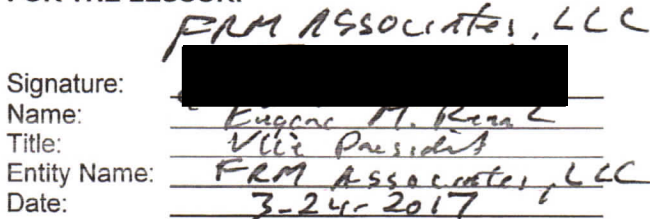 FRM Associates, LLC
Signature:
Name: Eugene M.
Title: Vice President
Entity Name: FRM Associates, LLC
Date: 3-24-2017